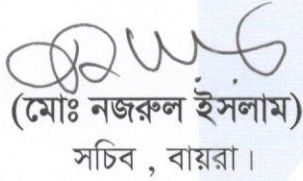 (মোঃ নজরুল ইসলাম)
সচিব , বায়রা।